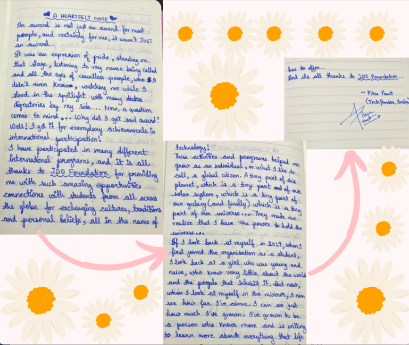 A HEARTFELT NOTE
An award is not just an award for most
people, and certainly for me, it wasn't just
an award.
It was an expression of pride, standing on
that stage, listening to my name being called
and all the eyes of countless people, who I
didn't even know, watching me while I
stood in the spotlight with many
dignitaries by my side... Now, a question
comes to mind... Why did I get said award?
Well! I got it for exemplary achievements in
international participation!
I have participated in many different
International programs, and it is all
thanks to IDO Foundation for providing
me with such amazing opportunities
connections with students from all across
the globe for exchanging cultures, traditions
and personal beliefs, all in the name of
technology!
These activities and programs helped me
grow as an individual, or what I like to
call, a global citizen. A tiny part of this
planet, which is a tiny part of our
solar system, which is a tiny part of
our galaxy (and finally) which is a tiny
part of our universe... They made me
realise that I have the power to hold the
universe...
If I look back at myself, in 2019, when I
first joined the organisation as a student,
I look back at a girl who was young and
naive, who knew very little about the world
and the people that inhabit it. But now,
when I look at myself in the mirror, I can
see how far I've come. I can see
how much I've grown. I've grown to be
a person who knows more and is willing
to learn more about everything that life
has to offer.
And its all thanks to IDO Foundation.